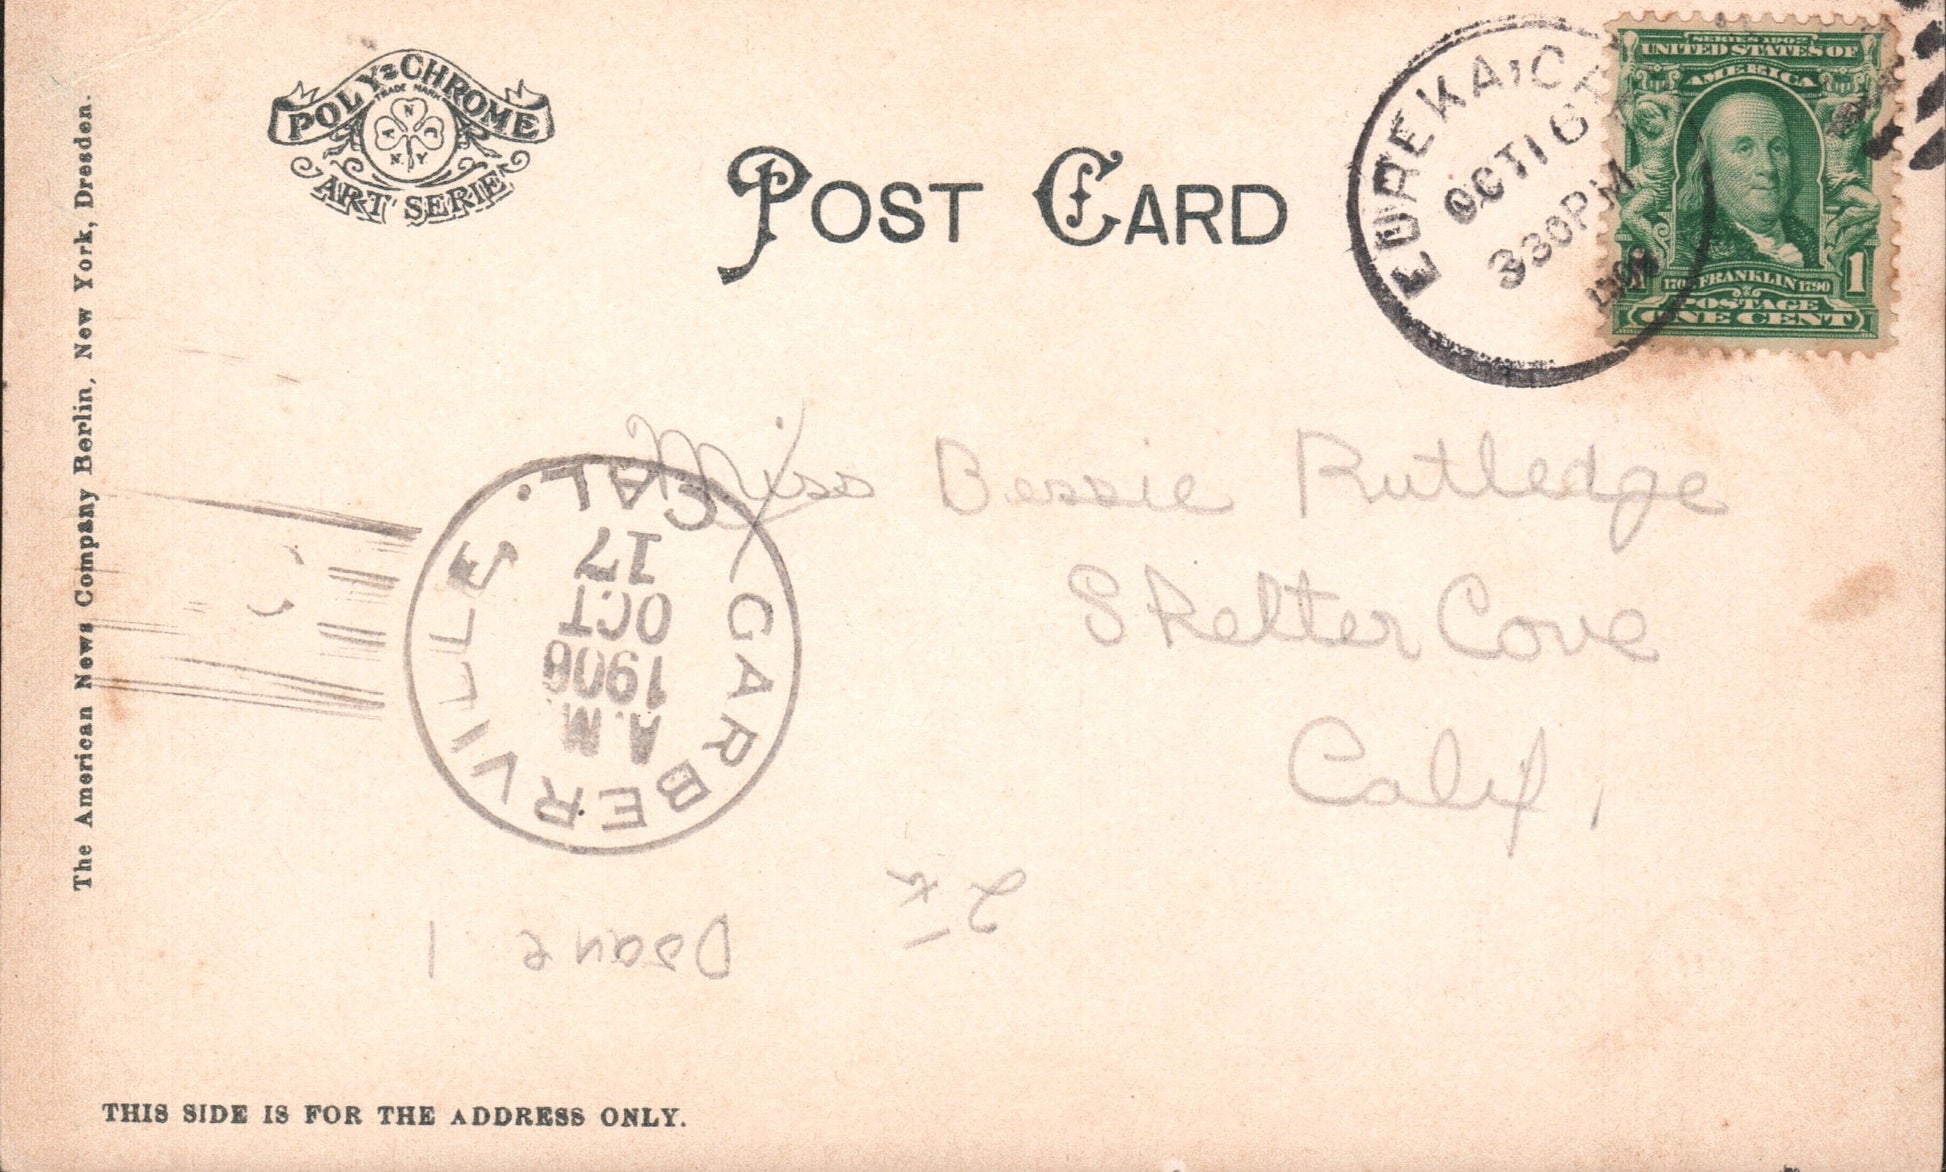 POLY-CHROME
TRADE MARK
A N C
N.Y
ART SERIE
POST CARD
EUREKA, C
OCT 16
330PM
SERIES 1902
UNITED STATES OF
AMERICA
FRANKLIN 1790
POSTAGE
1
ONE CENT
The American News Company Berlin, New York, Dresden.
Miss Bessie Rutledge
Shelter Cove
Calif,
GARBERVILLE, CAL.
A.M.
1906
OCT
17
Doane 1
THIS SIDE IS FOR THE ADDRESS ONLY.